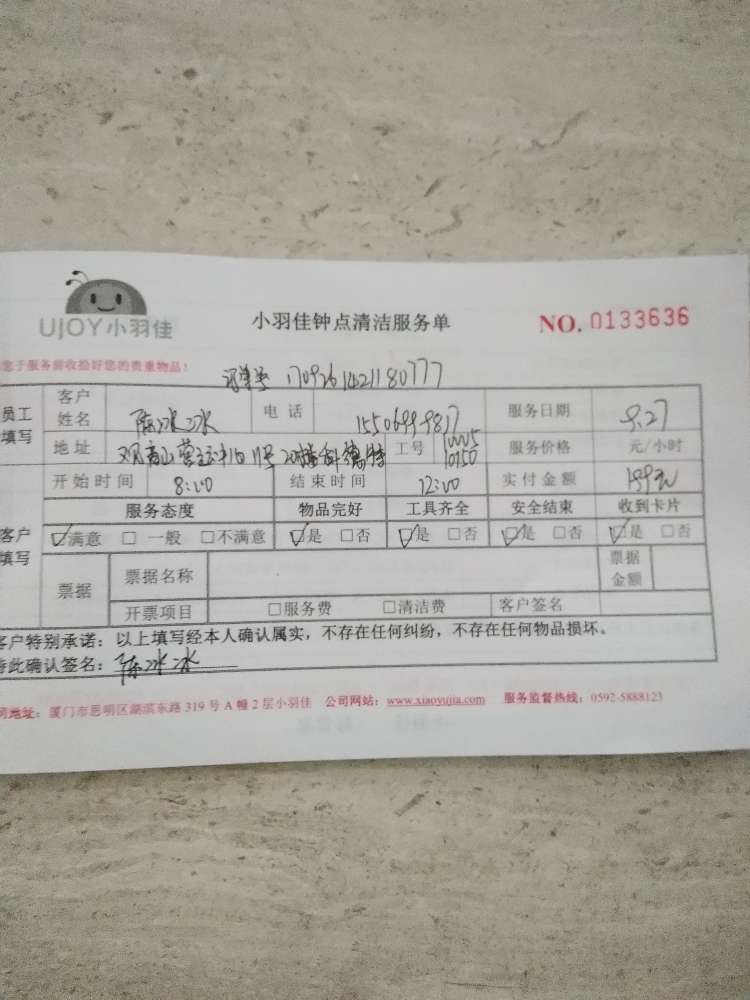 UJOY小羽佳
小羽佳钟点清洁服务单
NO. 0133636
您于服务前收拾好您的贵重物品!
订单号 1709261421180777
员工填写
客户姓名 陈冰冰 电话 服务日期 9.27
地址 工号 10005 10150 服务价格 元/小时
开始时间 8:00 结束时间 12:00 实付金额
客户填写
服务态度 物品完好 工具齐全 安全结束 收到卡片
☑满意 □一般 □不满意 ☑是 □否 ☑是 □否 ☑是 □否 ☑是 □否
票据 票据名称 票据金额
开票项目 □服务费 □清洁费 客户签名
客户特别承诺:以上填写经本人确认属实,不存在任何纠纷,不存在任何物品损坏。
特此确认签名:陈冰冰
司地址:厦门市思明区湖滨东路 319 号 A 幢 2 层小羽佳 公司网站:www.xiaoyujia.com 服务监督热线:0592-5888123